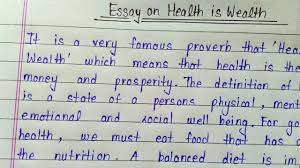 Essay on Health is Wealth
It is a very famous proverb that 'Hea
Wealth' which means that health is the
money and prosperity. The definition of
is a state of a persons physical, ment
emotional and social well being. For go
health, we must eat food that has a
the nutrition. A balanced diet is im